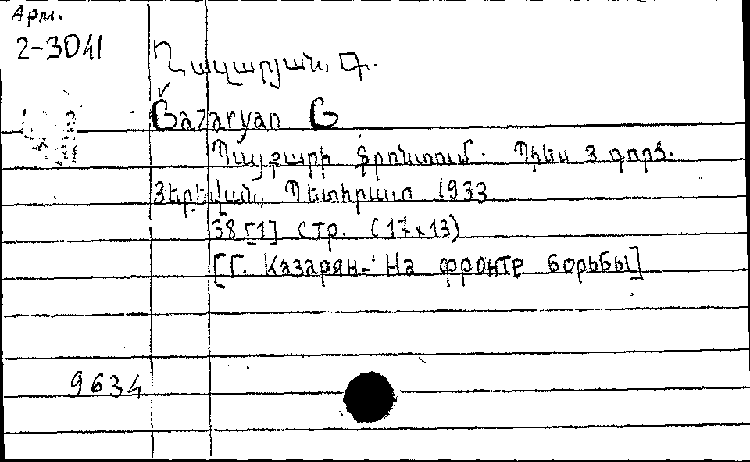 Арм.
2-3041
Ղազարյան, Գ.
Ğazaryan G
Պայքարի ֆրոնտում. Պիես 3 գործ.
Յերեվան, Պետհրատ 1933
38 [1] стр. (17×13)
[Г. Казарян.- На фронте борьбы]
9634